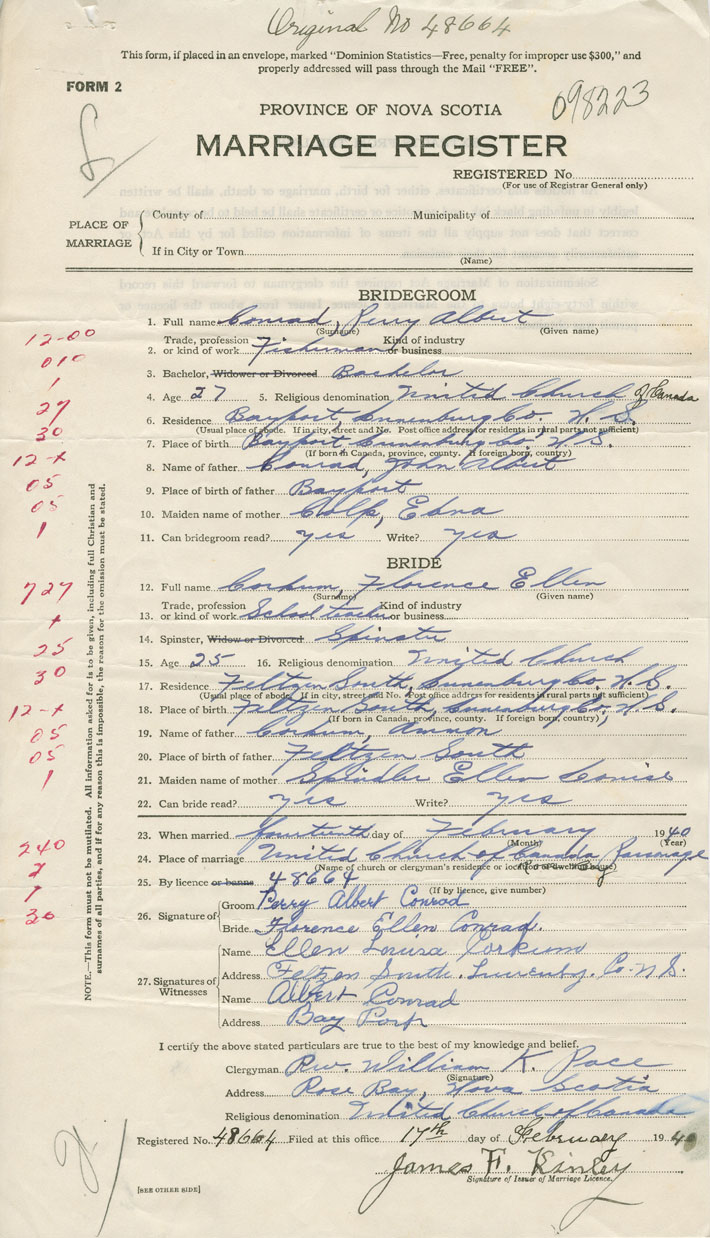 Original No 48664
This form, if placed in an envelope, marked "Dominion Statistics—Free, penalty for improper use $300," and
properly addressed will pass through the Mail "FREE".
FORM 2
098223
PROVINCE OF NOVA SCOTIA
MARRIAGE REGISTER
REGISTERED No.
(For use of Registrar General only)
PLACE OF MARRIAGE
County of Municipality of
If in City or Town
(Name)
BRIDEGROOM
1. Full name Conrad, Perry Albert
(Surname) (Given name)
Trade, profession Kind of industry
2. or kind of work Fisherman or business
3. Bachelor, Widower or Divorced Bachelor
4. Age 27 5. Religious denomination United Church of Canada
6. Residence Bayport, Lunenburg Co., N.S.
(Usual place of abode. If in city, street and No. Post office address for residents in rural parts not sufficient)
7. Place of birth Bayport Lunenburg Co., N.S.
(If born in Canada, province, county. If foreign born, country)
8. Name of father Conrad, John Albert
9. Place of birth of father Bayport
10. Maiden name of mother Colp, Edna
11. Can bridegroom read? yes Write? yes
BRIDE
12. Full name Corkum, Florence Ellen
(Surname) (Given name)
Trade, profession Kind of industry
13. or kind of work School teacher or business
14. Spinster, Widow or Divorced Spinster
15. Age 25 16. Religious denomination United Church
17. Residence Feltzen South, Lunenburg Co. N.S.
(Usual place of abode. If in city, street and No. Post office address for residents in rural parts not sufficient)
18. Place of birth Feltzen South, Lunenburg Co., N.S.
(If born in Canada, province, county. If foreign born, country)
19. Name of father Corkum, Ammon
20. Place of birth of father Feltzen South
21. Maiden name of mother Spindler Ellen Louise
22. Can bride read? yes Write? yes
23. When married fourteenth day of February 1940
(Month) (Year)
24. Place of marriage United Church of Canada Parsonage
(Name of church or clergyman's residence or location of dwelling house)
25. By licence or banns 48664
(If by licence, give number)
26. Signature of
Groom Perry Albert Conrad
Bride Florence Ellen Conrad.
27. Signatures of Witnesses
Name Ellen Louisa Corkum
Address Feltzen South. Lunenbg. Co. N.S.
Name Albert Conrad
Address Bay Port
I certify the above stated particulars are true to the best of my knowledge and belief.
Clergyman Rev. William K. Pace
(Signature)
Address Rose Bay, Nova Scotia
Religious denomination United Church of Canada
Registered No. 48664 Filed at this office 17th day of February 1940
James F. Kinley
Signature of Issuer of Marriage Licence.
[SEE OTHER SIDE]
NOTE.—This form must not be mutilated. All information asked for is to be given, including full Christian and
surnames of all parties, and if for any reason this is impossible, the reason for the omission must be stated.
12-00
010
1
27
30
12-+
05
05
1
727
+
25
30
12-+
05
05
1
240
2
1
30